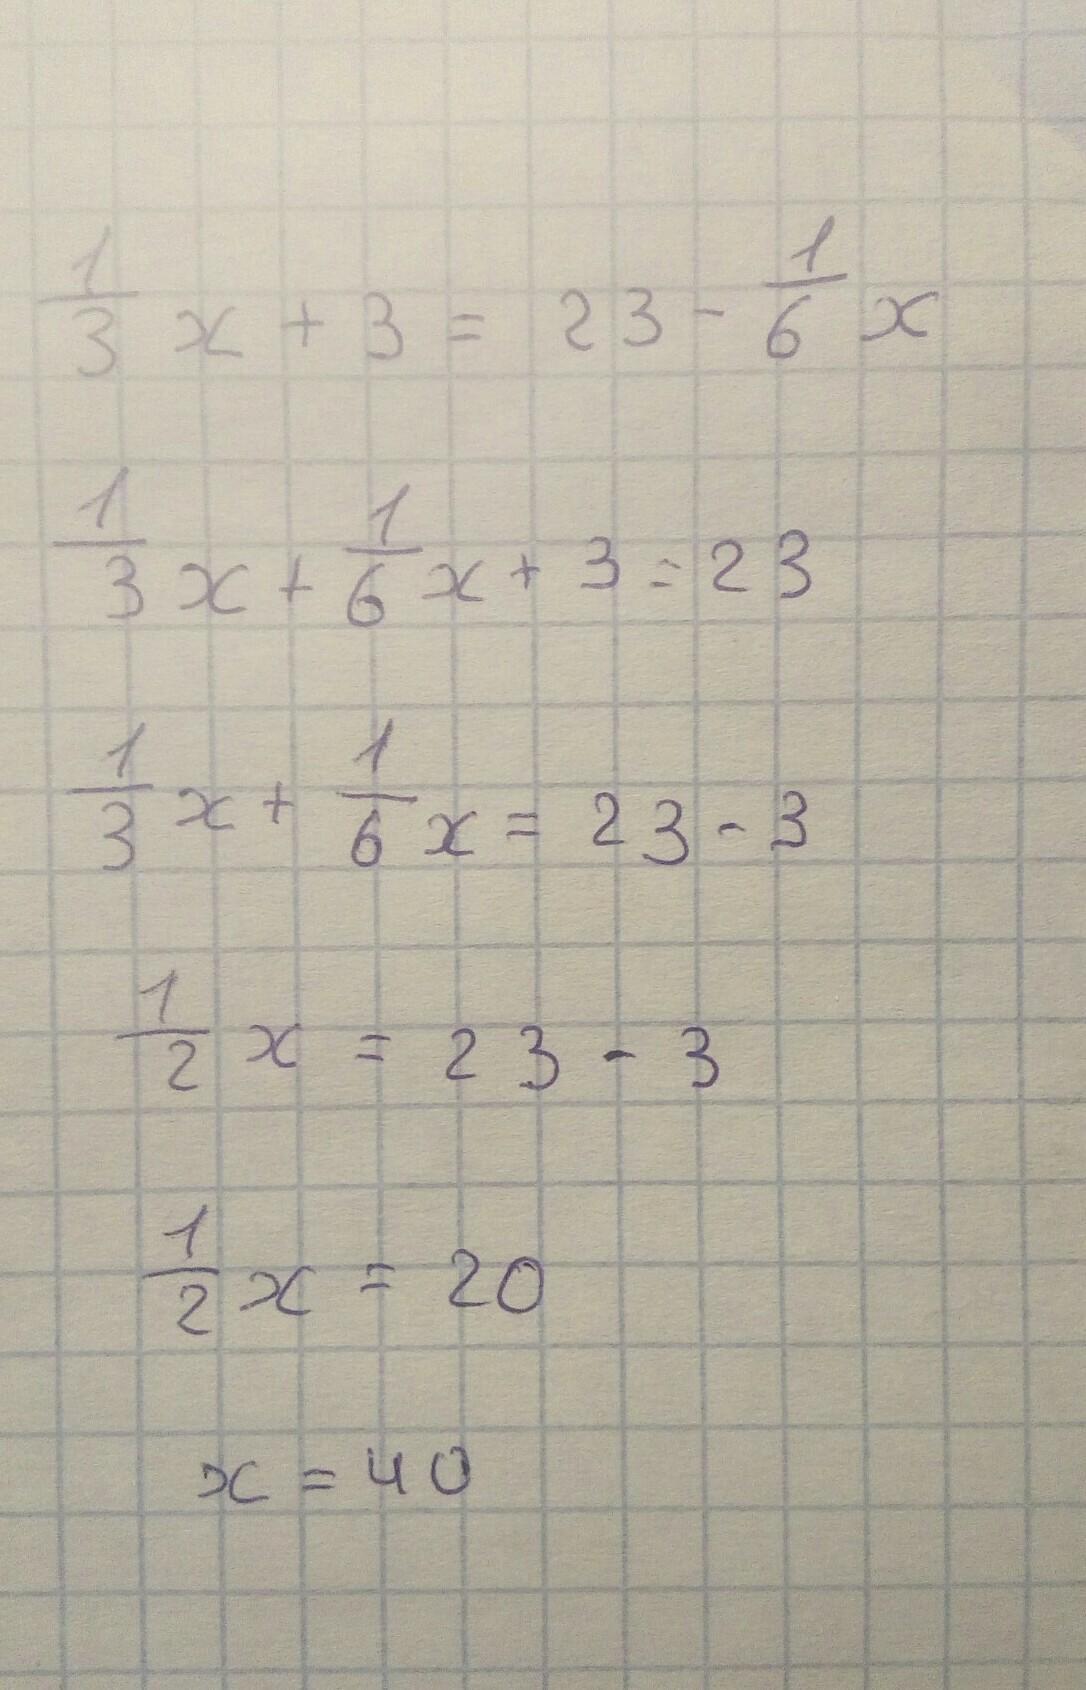 1/3 x + 3 = 23 - 1/6 x
1/3 x + 1/6 x + 3 = 23
1/3 x + 1/6 x = 23 - 3
1/2 x = 23 - 3
1/2 x = 20
x = 40